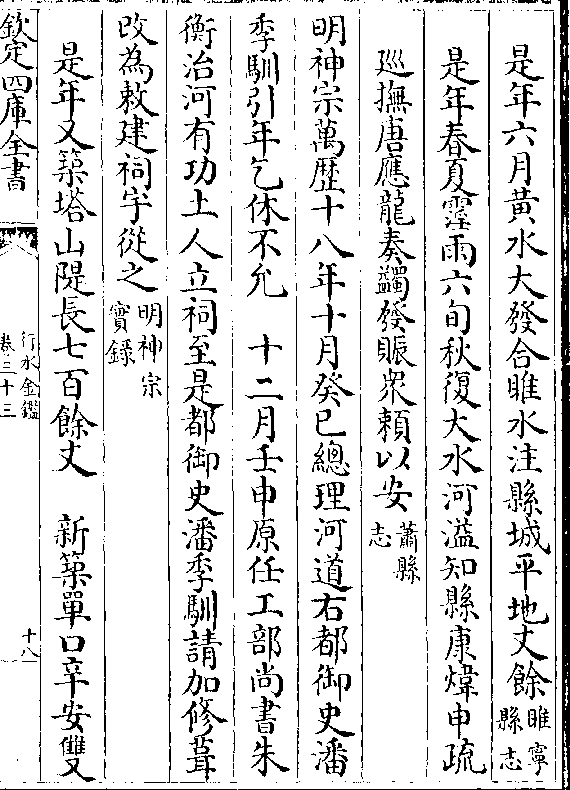 是年六月黃水大發合睢水注縣城平地丈餘睢寧縣志
是年春夏霪雨六旬秋復大水河溢知縣康煒申疏
巡撫唐應龍奏蠲發賑衆頼以安蕭縣志
明神宗萬歴十八年十月癸巳總理河道右都御史潘
季馴引年乞休不允　十二月壬申原任工部尚書朱
衡治河有功土人立祠至是都御史潘季馴請加修葺
改為敕建祠宇從之明神宗實錄
是年又築塔山隄長七百餘丈　新築單口辛安雙
欽定四庫全書
行水金鑑
卷三十三
十八